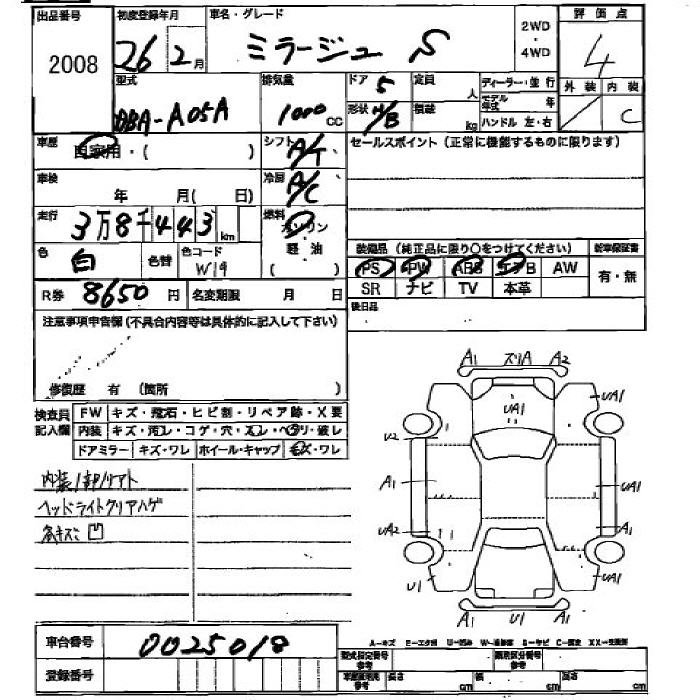 出品番号 初度登録年月 車名・グレード 2WD・4WD 評価点
2008 26 2月 ミラージュ S 4
型式 排気量 ドア 5 定員 人 ディーラー・並行 外装 内装
DBA-A05A 1000cc 形状 H/B 積載 kg モデル年式 年 C
ハンドル 左・右
車歴 自家用・( ) シフト A/T セールスポイント (正常に機能するものに限ります)
車検 年 月( 日) 冷房 A/C
走行 3万8千443km 燃料 ガソリン
軽油
( )
色 白 色替 色コード W19 装備品 (純正品に限り○をつけてください) 新車保証書
PS PW ABS エアB AW 有・無
R券 8650円 名変期限 月 日 SR ナビ TV 本革
後日品
注意事項申告欄 (不具合内容等は具体的に記入して下さい)
修復歴 有 (箇所 )
検査員記入欄 FW キズ・飛石・ヒビ割・リペア跡・X要
内装 キズ・汚レ・コゲ・穴・スレ・ヘタリ・破レ
ドアミラー キズ・ワレ ホイール・キャップ キズ・ワレ
内装1部リアト
ヘッドライトクリアハゲ
各キズミ凹
A1 ズリA A2
UA1 UA1
U2
A1 UA1
UA2 A1
U1 UA1
A1 U1 A1
車台番号 0025018
A-キズ E-エクボ U-凹み
登録番号 型式指定番号 参考 類別区分番号 参考
長さ cm 幅 cm 高さ cm